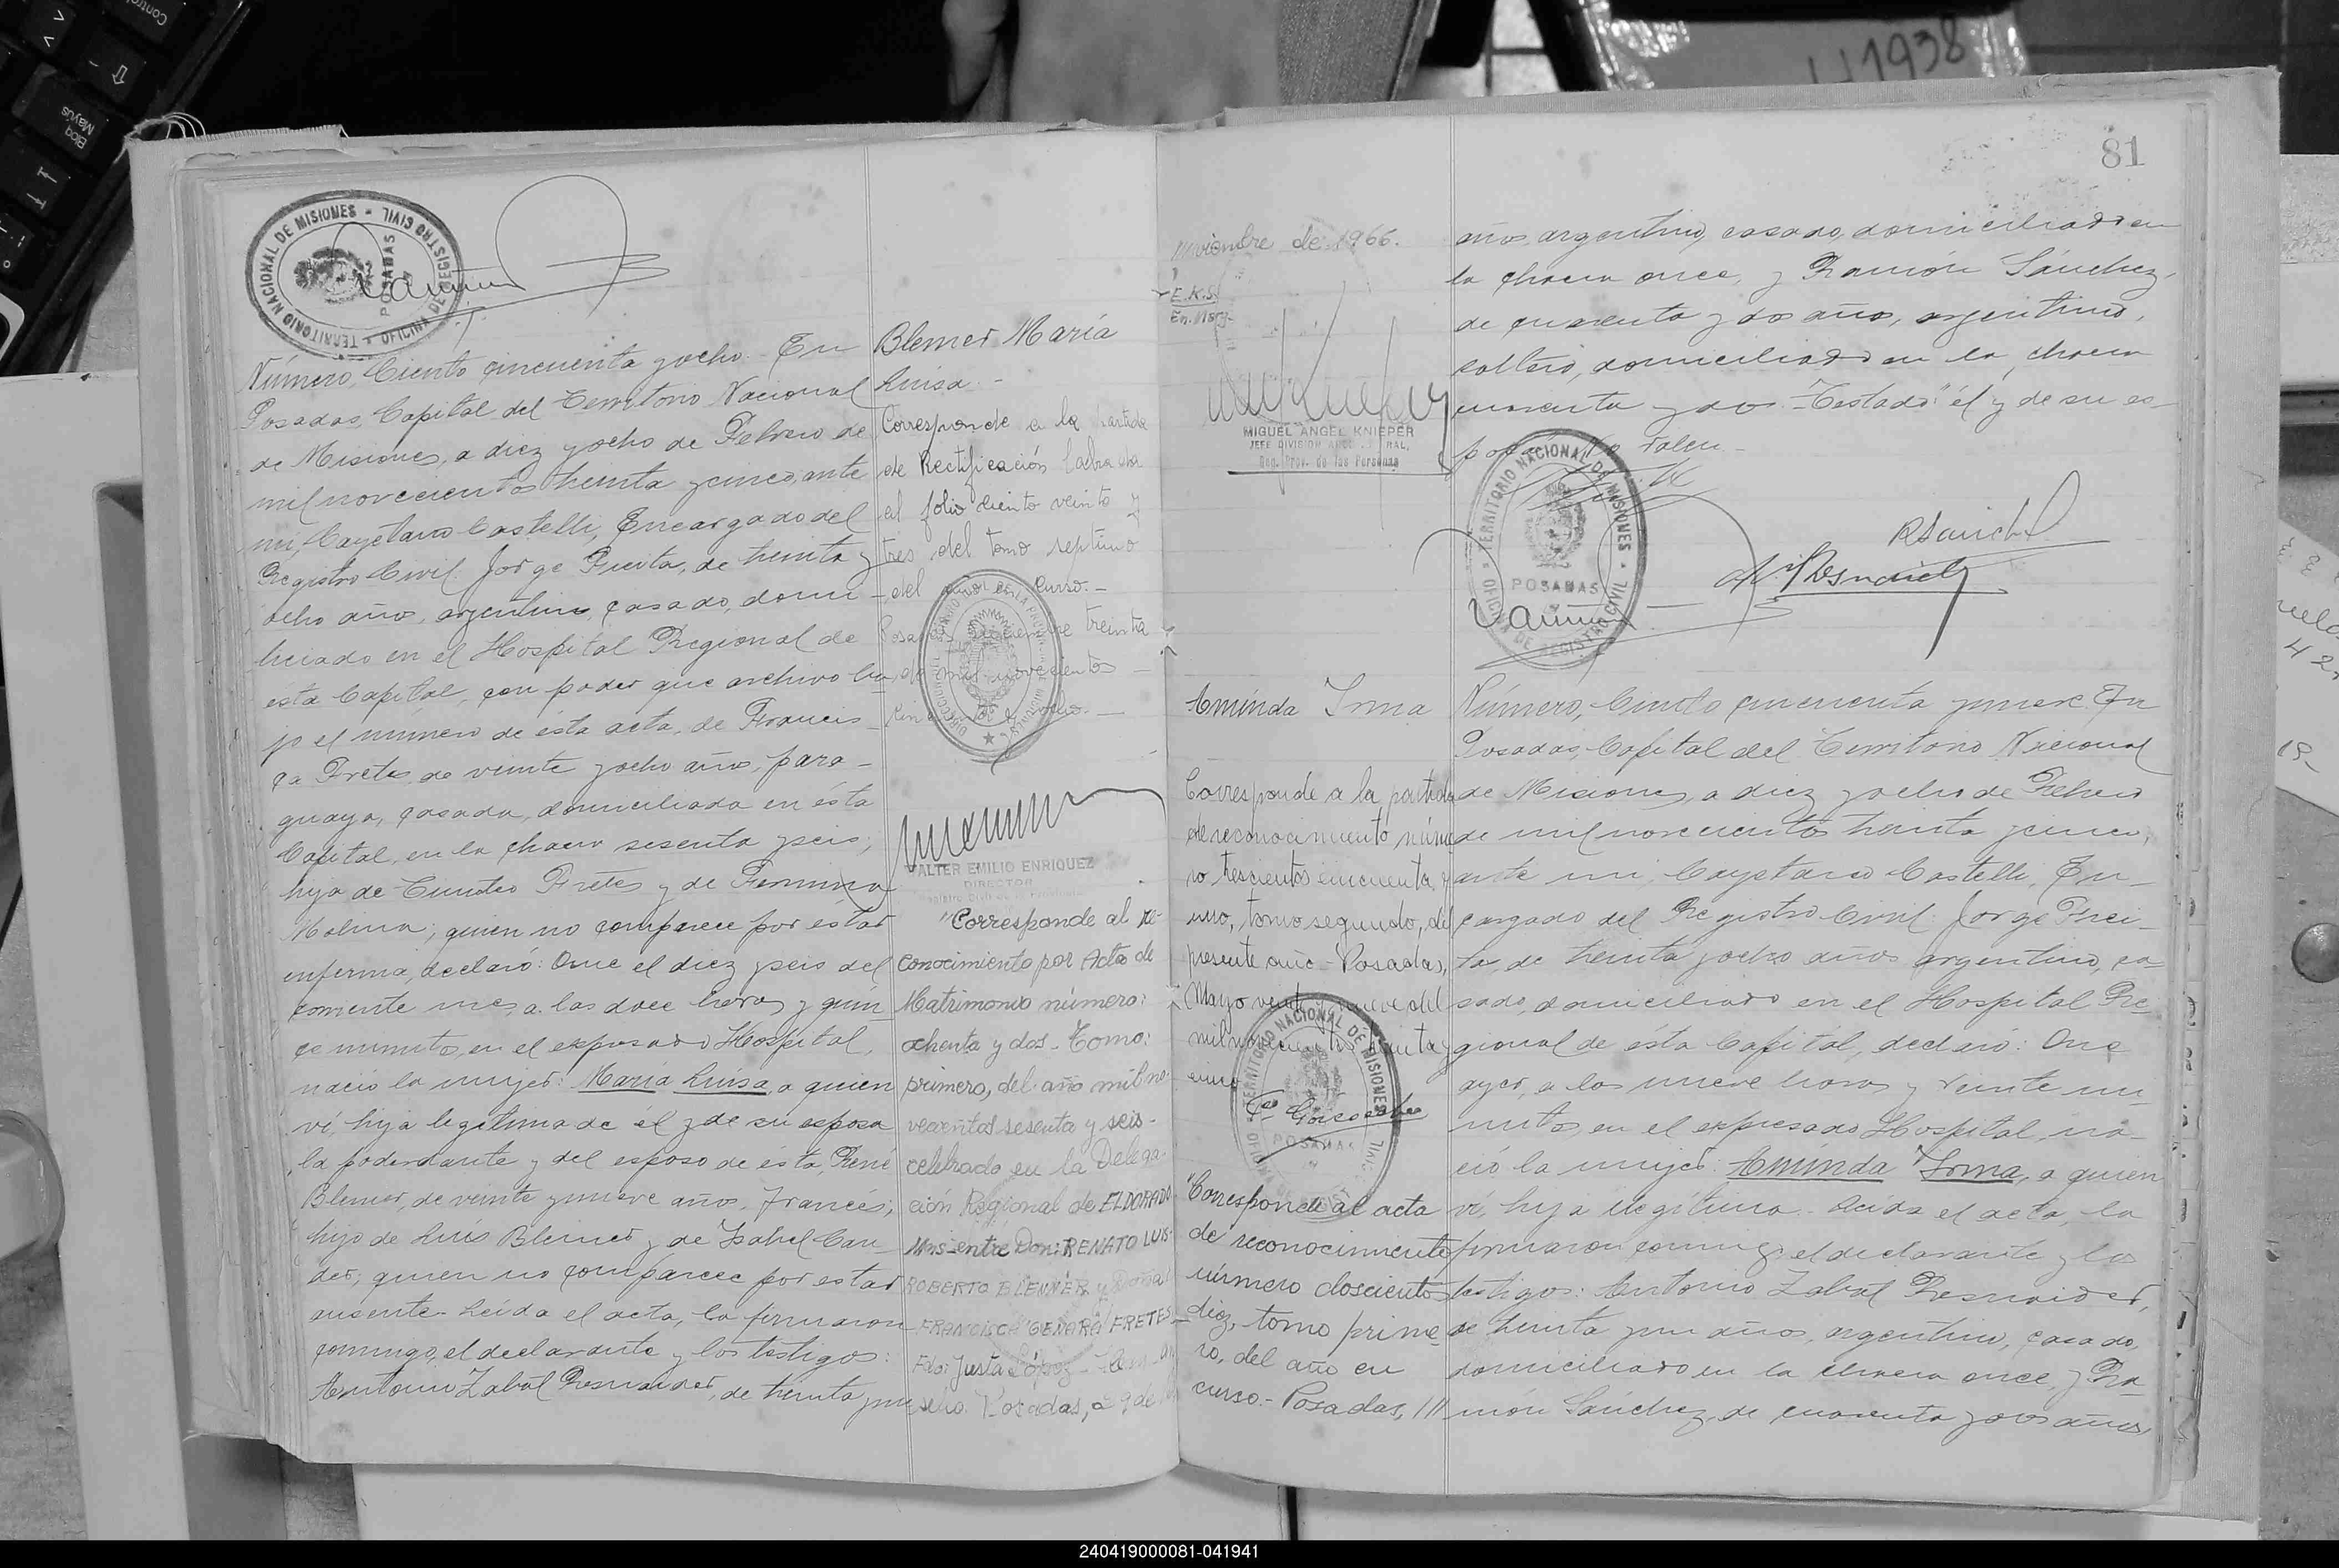 H 1938
81
TERRITORIO NACIONAL DE MISIONES - OFICINA DE REGISTRO CIVIL -
POSADAS
Número, Ciento cincuenta y ocho.- En
Posadas, Capital del Territorio Nacional
de Misiones, a diez y ocho de Febrero de
mil novecientos treinta y cinco, ante
mi, Cayetano Castelli, Encargado del
Registro Civil. Jorge de treinta y
ocho años, argentino, casado, domi-
ciliado en el Hospital Regional de
esta Capital, con poder que archivo ba-
jo el número de ésta acta, de Francis-
ca Fretes, de veinte y ocho años, para-
guaya, casada, domiciliada en ésta
Capital, en la chacra sesenta y seis;
hija de Fretes y de
Molina; quien no comparece por estar
enferma, declaró: Que el diez y seis del
corriente mes, a las doce horas y quin-
ce minutos, en el expresado Hospital,
nació la mujer: María Luisa, a quien
ví, hija legítima de él y de su esposa
la poderdante y del esposo de ésta, René
Blemer, de veinte y nueve años, francés;
hijo de Luís Blemer y de Isabel Can-
der; quien no comparece por estar
ausente. Leída el acta, la firmaron
conmigo, el declarante y los testigos:
Antonio Zabal Resnaider, de treinta y un
Blemer María
Luisa.-
Corresponde a la partida
de Rectificación labrada
al folio ciento veinte y
tres del tomo septimo
del curso.-
Posadas, treinta
de mil novecientos
cincuenta y ocho.-
WALTER EMILIO ENRIQUEZ
DIRECTOR
"Corresponde al re-
conocimiento por Acta de
Matrimonio número:
ochenta y dos- Tomo:
primero, del año mil no-
vecientos sesenta y seis-
celebrado en la Delega-
ción Regional de ELDORADO
Mns- entre Don: RENATO LUIS-
ROBERTO BLENNER y Doña
FRANCISCA GENARA FRETES-
Fdo: Justa López-
sello. Posadas, a 9 de
noviembre de 1966.
E.K.S.
En. Marg.
MIGUEL ANGEL KNIEPER
JEFE DIVISION
Reg. Prov. de las Personas
años, argentino, casado, domiciliado en
la chacra once, y Ramón Sánchez,
de cuarenta y dos años, argentino,
soltero, domiciliado en la chacra
cuarenta y dos.- Testado "él y de su es-
posa" No valen.-
TERRITORIO NACIONAL DE MISIONES - OFICINA DE REGISTRO CIVIL
POSADAS
R Sanchez
Aminda Irma
Corresponde a la partida
de reconocimiento núme-
ro trescientos cincuenta y
uno, tomo segundo, del
presente año.- Posadas,
Mayo veinte y nueve del
mil novecientos treinta y
cinco
TERRITORIO NACIONAL DE MISIONES
POSADAS
"Corresponde al acta
de reconocimiento
número doscientos
diez, tomo prime-
ro, del año en
curso.- Posadas, ///
Número, Ciento cincuenta y nueve. En
Posadas, Capital del Territorio Nacional
de Misiones, a diez y ocho de Febrero
de mil novecientos treinta y cinco,
ante mi, Cayetano Castelli, En-
cargado del Registro Civil. Jorge
de treinta y ocho años, argentino, ca-
sado, domiciliado en el Hospital Re-
gional de ésta Capital, declaró: Que
ayer, a las nueve horas y veinte mi-
nutos, en el expresado Hospital, na-
ció la mujer: Aminda Irma, a quien
ví, hija ilegítima.- Leída el acta, la
firmaron conmigo, el declarante y los
testigos: Antonio Zabal Resnaider,
de treinta y un años, argentino, casado,
domiciliado en la chacra once, y Ra-
món Sánchez, de cuarenta y dos años,
240419000081-041941